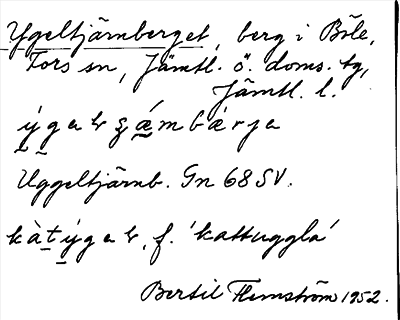 Ygeltjärnberget, berg i Böle,
Fors sn, Jämtl. ö. doms. tg,
Jämtl. l.
Uggeltjärnb. Gn 68 SV.
f. 'kattuggla'
Bertil Flemström 1952.